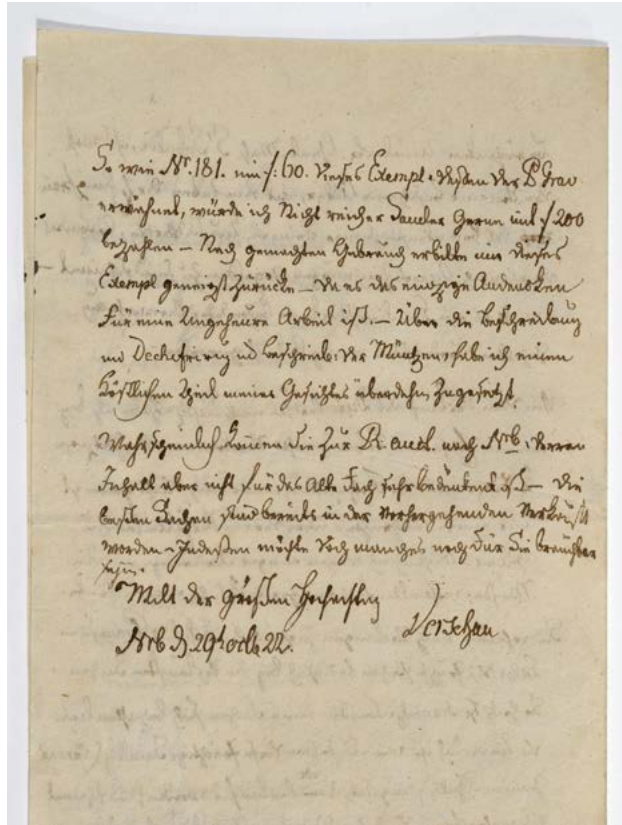 So wie Nr. 181. um f: 60. dieses Exempl. dessen der P Grav
erwähnet, würde ich Nicht reicher Sammler Gerne mit f 200
bezahlen – Nach gemachten Gebrauch erbitte mir dieses
Exempl geneigst zurücke – da es das einzige Andencken
für eine Ungeheure Arbeit ist. – Über die Beschreibung
und Dechifrirung und Beschreib: der Müntzen, habe ich einen
köstlichen Theil meines Gesichtes überdehm zugesetzt.
Wahrscheinlich kommen Sie zur R. auct. nach Nrb, derren
Inhalt aber nicht für das Alte Fach sehr bedeutend ist – die
besten Sachen sind bereits in der Vorhergehenden Verkauft
worden – Indeßen möchte doch manches noch für Sie brauchbar
seyn.
Mitt der größten Hochachtung
Derschau
Nrb d 29t octb 22.